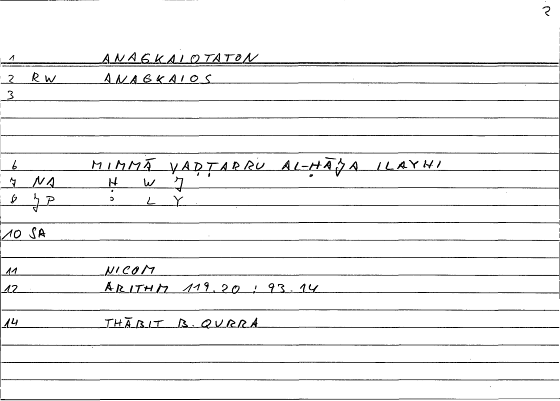 2
1 ANAGKAIOTATON
2 RW ANAGKAIOS
3
6 MIMMĀ YAḌṬARRU AL-ḤĀJA ILAYHI
7 NA Ḥ W J
8 JP ʾ L Y
10 SA
11 NICOM
12 ARITHM 119.20 ; 93.14
14 THĀBIT B. QURRA